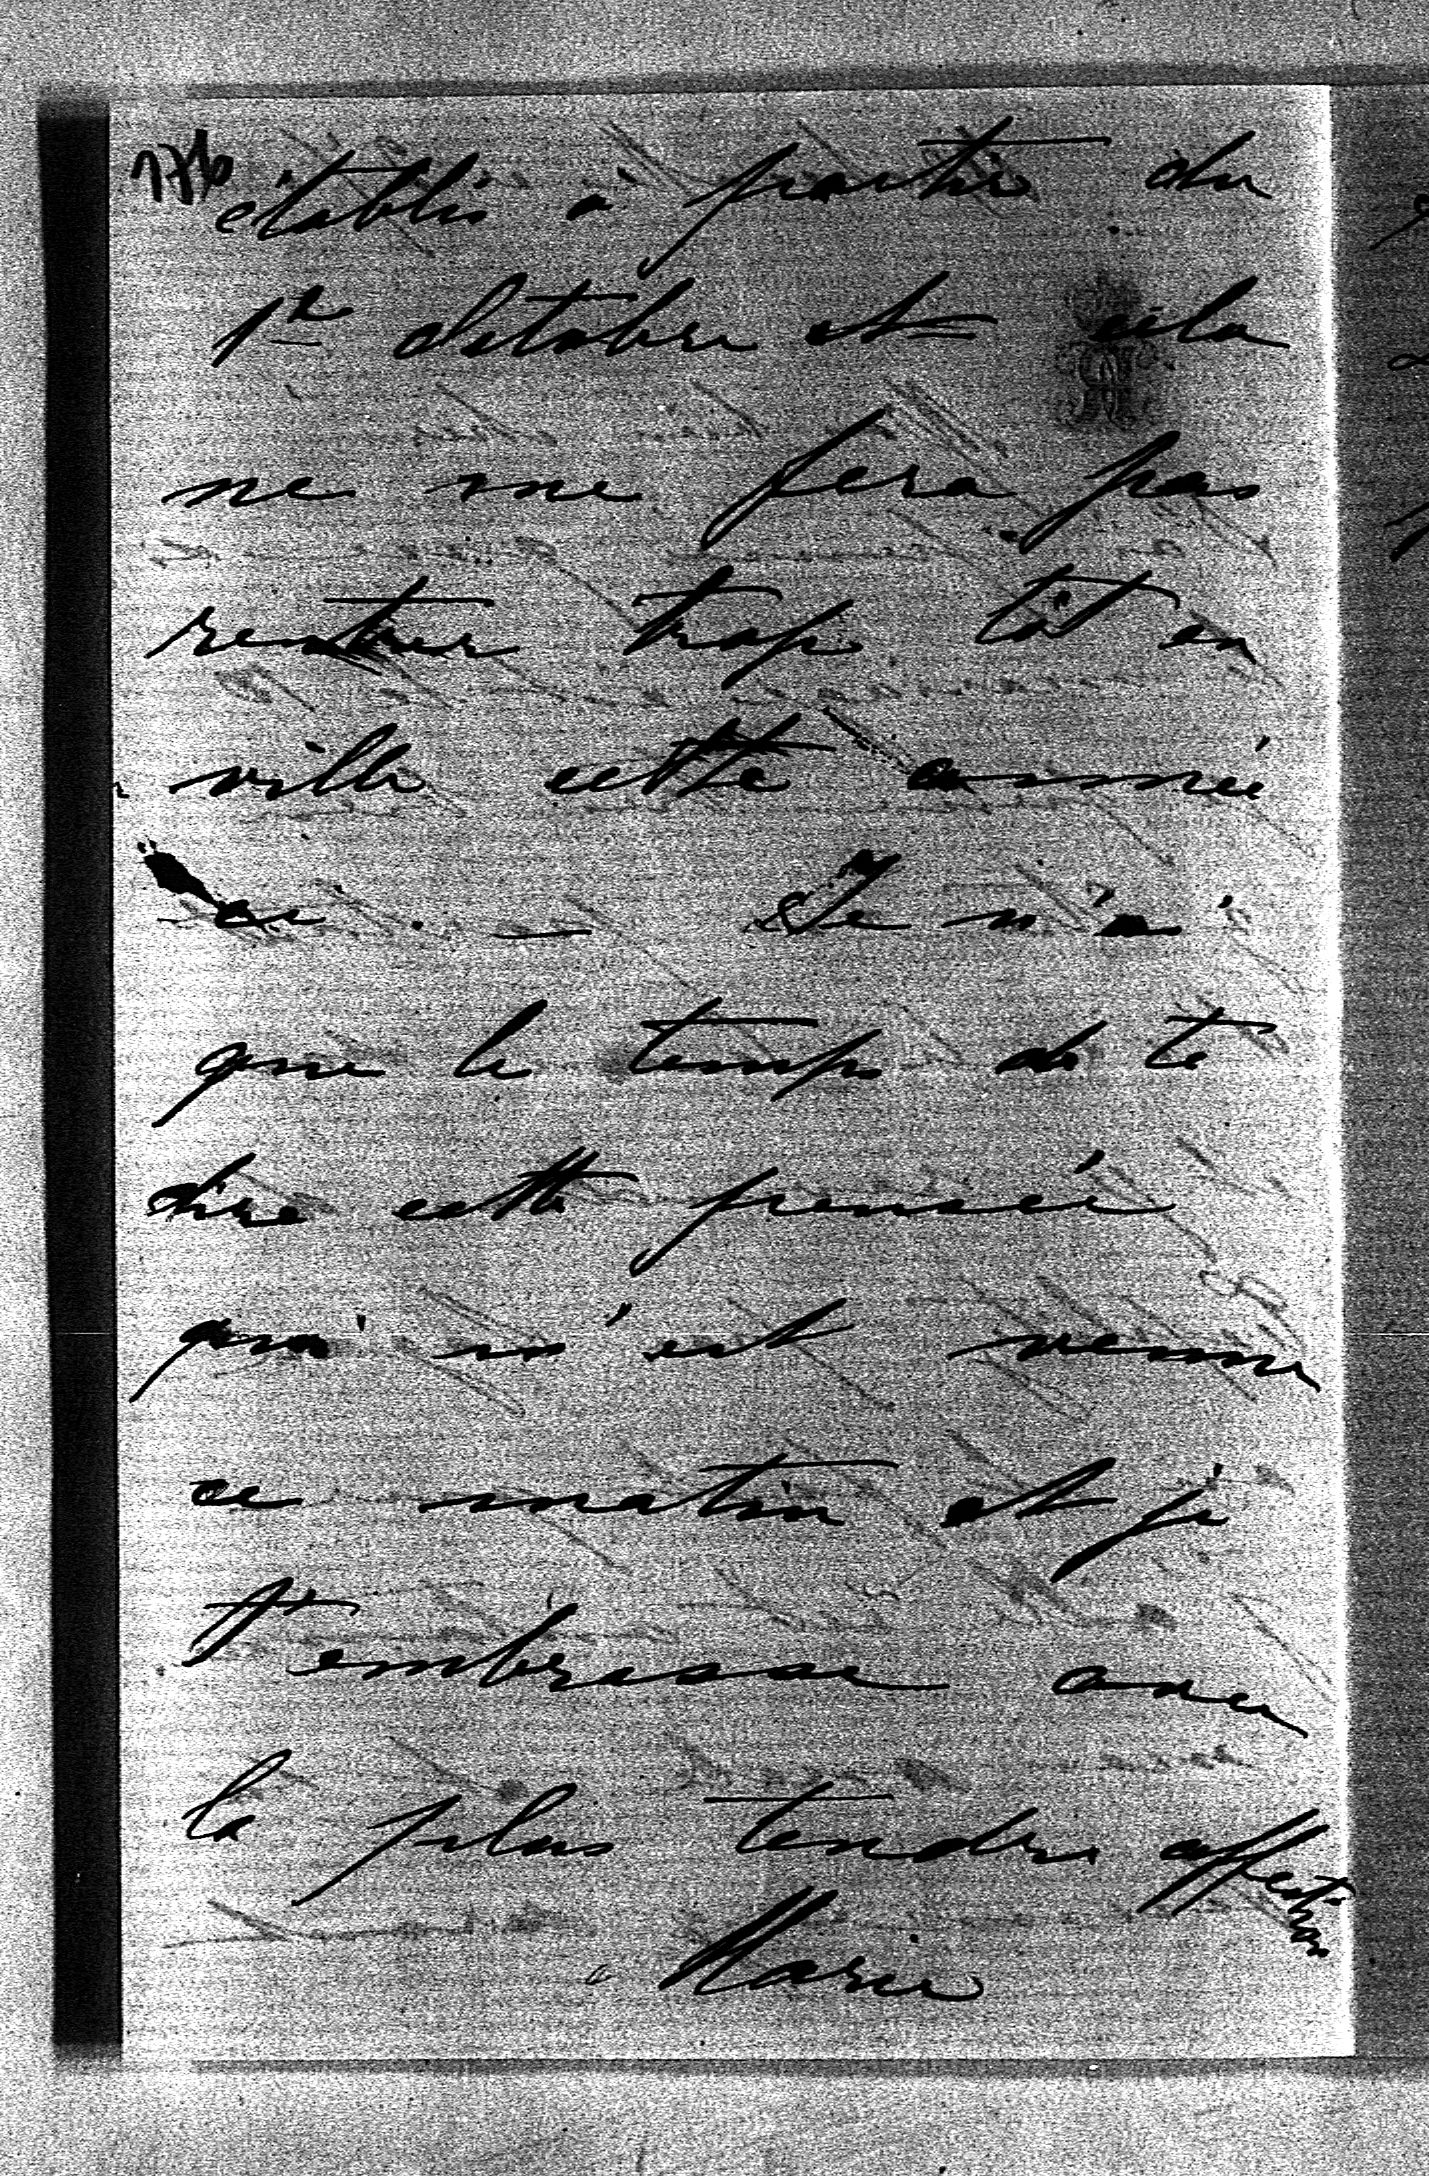 176
établis à partir du
1er Octobre et cela
ne me fera pas
rentrer trop tôt en
ville cette année
ci. — Je n'ai
que le temps de te
dire cette pensée
qui m'est venue
ce matin et je
t'embrasse avec
la plus tendre affection
Marie